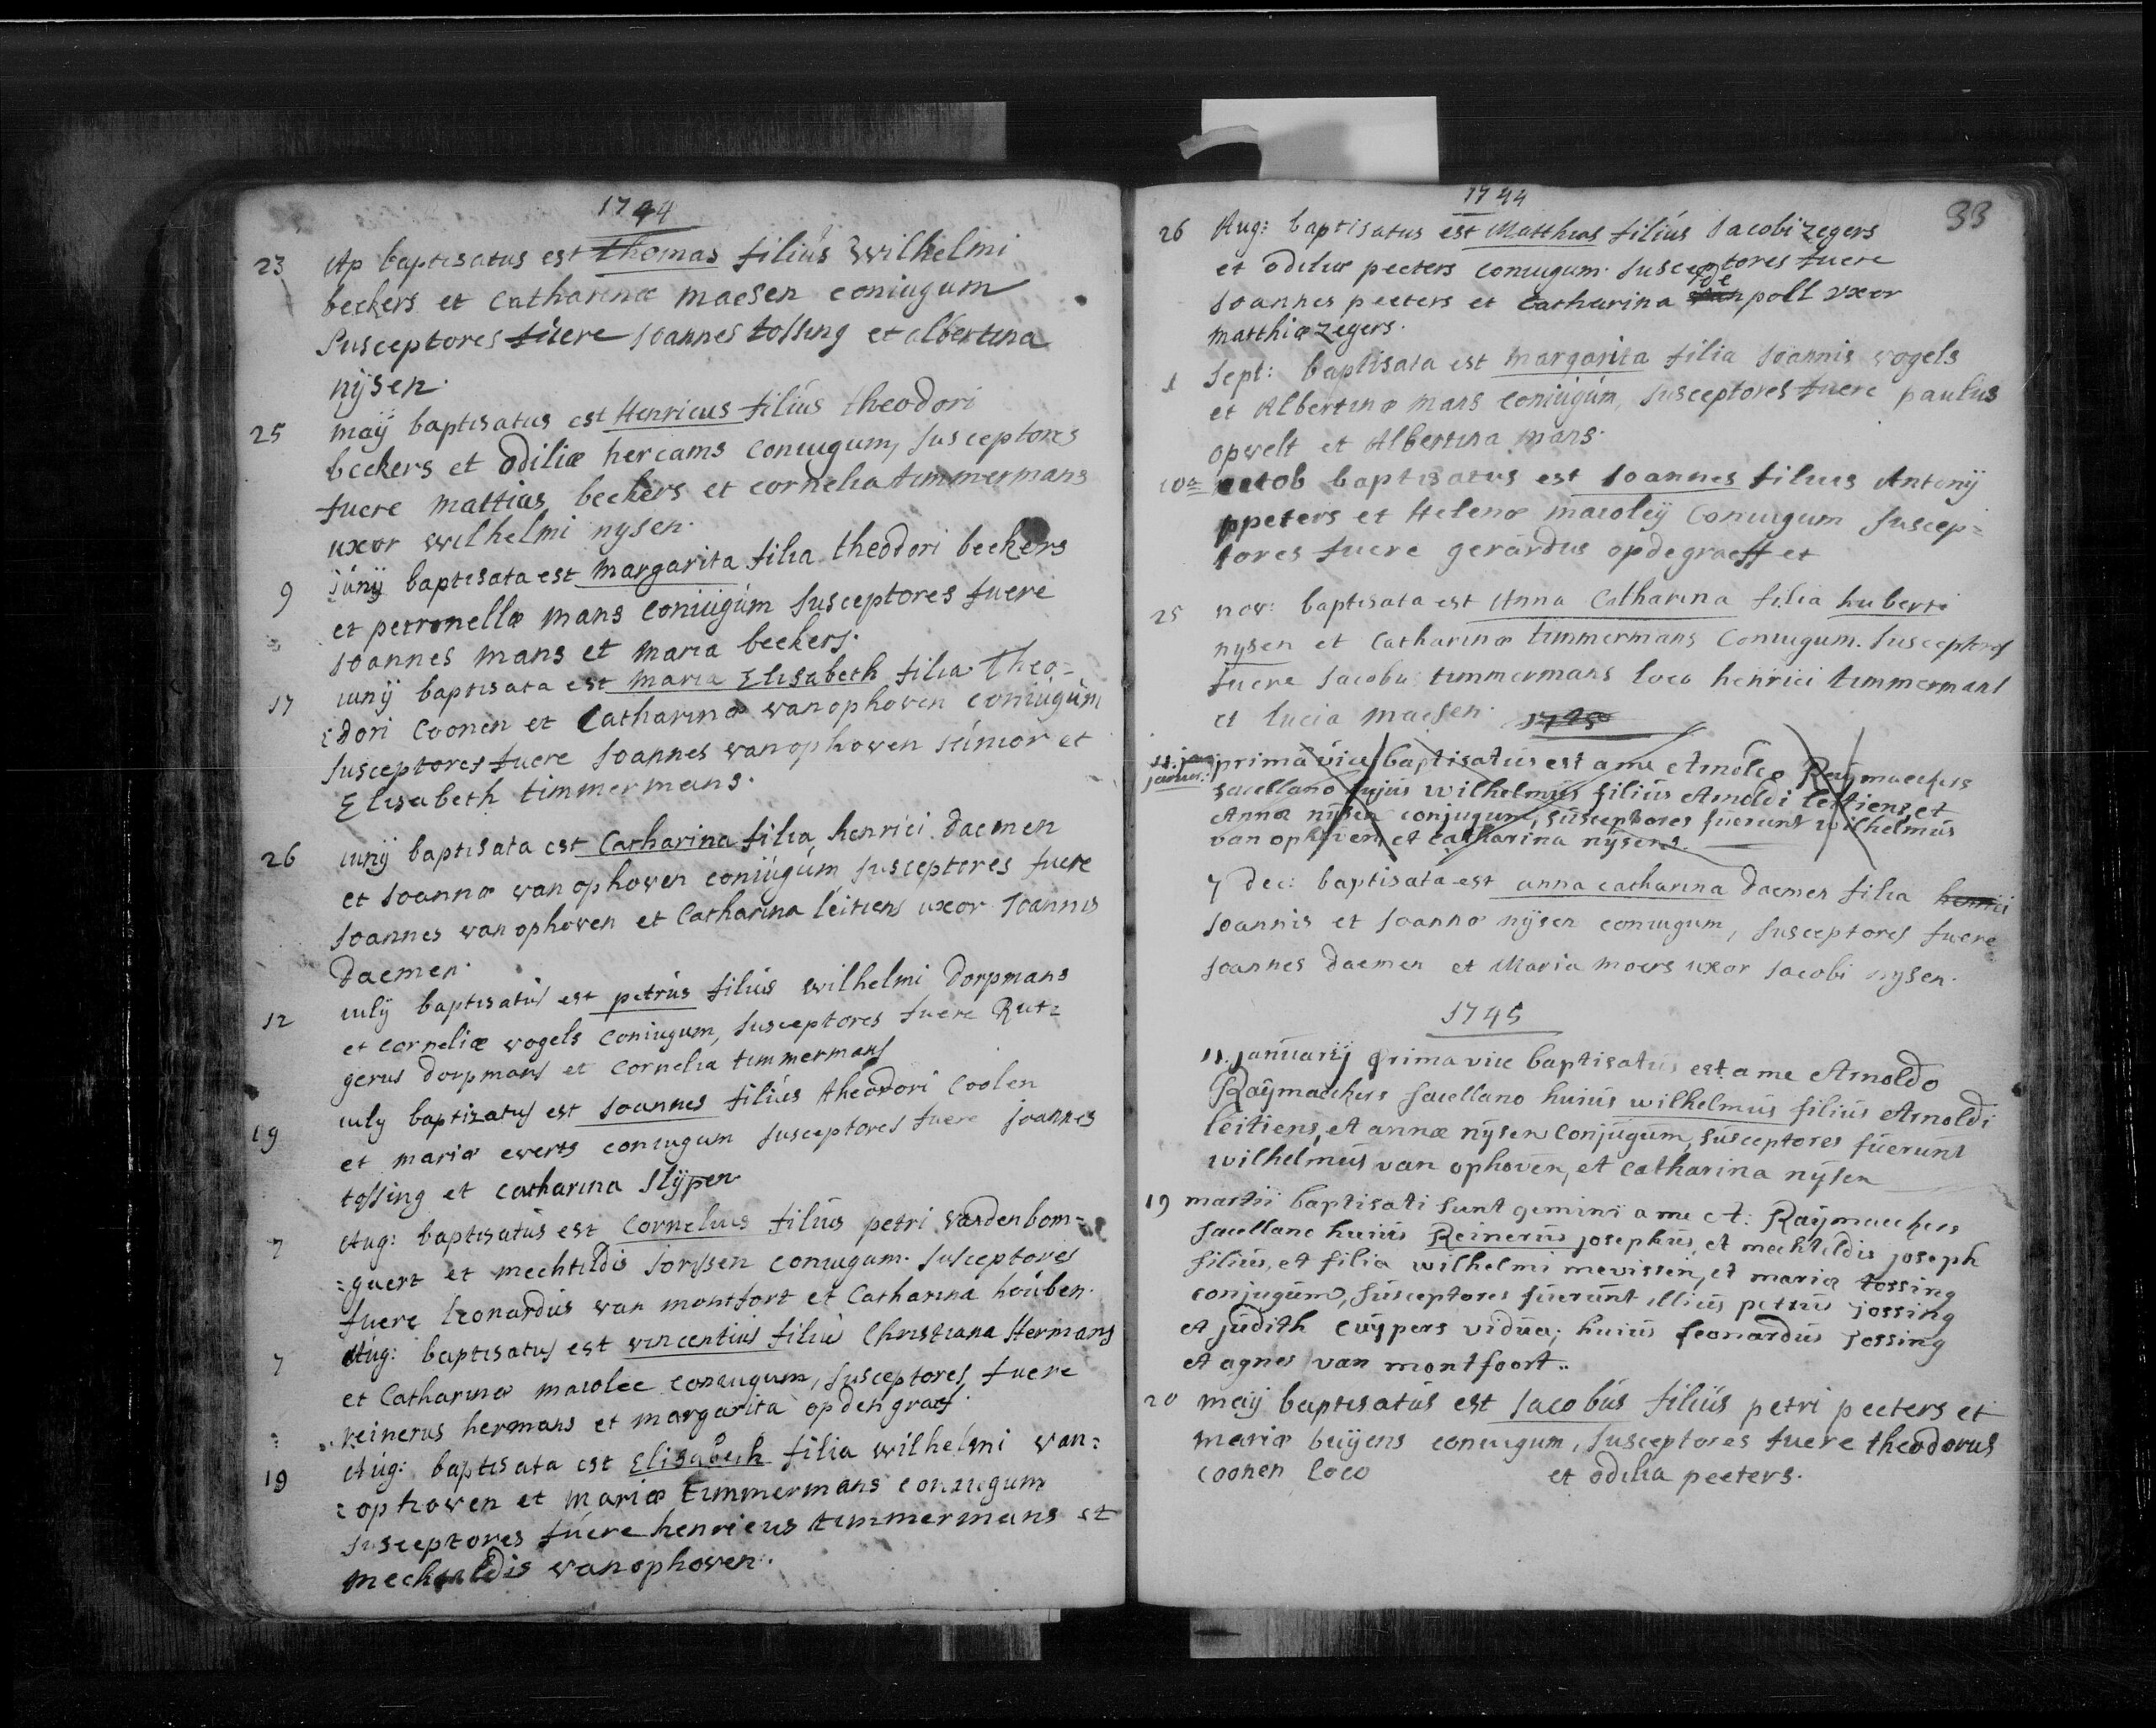 1744
23 Ap baptisatus est thomas filius Wilhelmi
beckers et Catharinæ maesen coniugum
Susceptores fuere Joannes tossing et albertina
nijsen.
25 maij baptisatus est Henricus filius theodori
beckers et Odiliæ hercams coniugum, susceptores
fuere mattias beckers et cornelia timmermans
uxor wilhelmi nysen.
9 junij baptisata est Margarita filia theodori beckers
et petronellæ mans coniugum susceptores fuere
Joannes mans et maria beckers.
17 iunij baptisata est maria Elisabeth filia Theo=
=dori Coonen et Catharinæ van ophoven coniugum
susceptores fuere Joannes van ophoven junior et
Elisabeth timmermans.
26 iunij baptisata est Catharina filia henrici daemen
et Joannæ van ophoven coniugum susceptores fuere
Joannes van ophoven et Catharina leitiens uxor Joannis
daemen.
12 iuly baptisatus est petrus filius wilhelmi dorpmans
et corneliæ vogels coniugum, susceptores fuere Rut=
gerus dorpmans et Cornelia timmermans
19 iuly baptizatus est Joannes filius theodori Coolen
et mariæ everts coniugum susceptores fuere joannes
tossing et Catharina Slijpen
7 Aug: baptisatus est Cornelius filius petri vandenbom=
=gaert et mechtildis Jorissen coniugum. susceptores
fuere leonardus van montfort et Catharina houben.
7 Aug: baptisatus est vincentius filius Christiana Hermans
et Catharinæ maiolee coniugum, susceptores fuere
reinerus hermans et margarita opden graef
19 Aug: baptisata est Elisabeth filia wilhelmi van=
=ophoven et mariæ timmermans coniugum
susceptores fuere henricus timmermans et
mechtildis van ophoven.
1744 33
26 Aug: baptisatus est Matthias filius Jacobi zegers
et odiliæ peeters coniugum. susceptores fuere
Joannes peeters et Catharina van opde poll uxor
matthiæ zegers.
1 Sept: baptisata est margarita filia Joannis vogels
et Albertinæ mans coniugum, susceptores fuere paulus
opvelt et Albertina mans.
10a octob baptisatus est Joannes filius Antonij
ppeters et Helenæ maioleij Coniugum suscep=
tores fuere gerardus opdegraeff et
25 nov: baptisata est Anna Catharina filia huberti
nysen et Catharinæ timmermans Coniugum. susceptres
fuere Jacobus timmermans loco henrici timmermans
et lucia maesen. 1745
11. januar: prima vice baptisatus est a me Arnoldo Raijmaeckers
sacellano hujus wilhelmus filius Arnoldi leitiens, et
Annæ nijsen conjugum, susceptores fuerunt wilhelmus
van ophoven, et catharina nijsens.
7 dec: baptisata est anna catharina daemen filia henrici
Joannis et Joannæ nijsen coniugum, susceptores fuere
Joannes daemen et Maria moers uxor Jacobi nysen.
1745
11. januarij prima vice baptisatus est a me Arnoldo
Raijmaeckers sacellano huius wilhelmus filius Arnoldi
leitiens, et annæ nijsen conjugum, susceptores fuerunt
wilhelmus van ophoven, et catharina nijsen
19 martii baptisati sunt gemini a me A: Raijmaeckers
sacellano huius Reinerus josephus, et mechtildis joseph
filius, et filia wilhelmi mevissen, et mariæ tossing
conjugum, susceptores fuerunt illius petrus jossing
et judith cuijpers vidua; huius leonardus jossing
et agnes van montfoort..
20 maij baptisatus est Jacobus filius petri peeters et
mariæ buijens coniugum, susceptores fuere theodorus
coonen loco et odilia peeters.